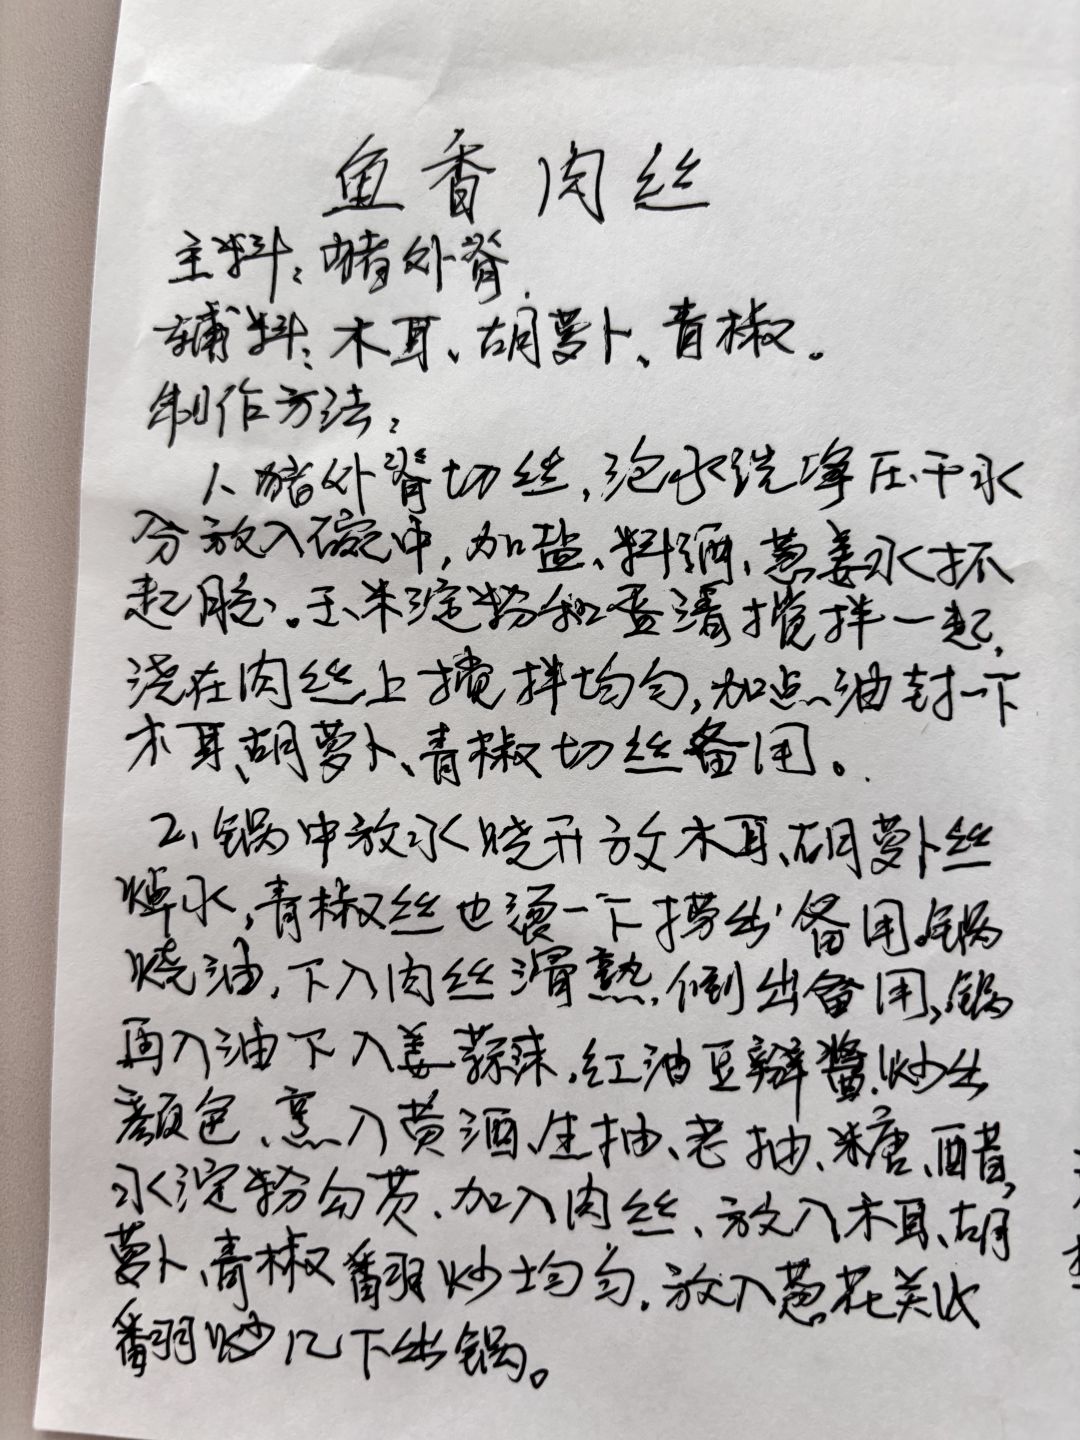 鱼香肉丝
主料：猪外脊
辅料：木耳、胡萝卜、青椒。
制作方法：
1、猪外脊切丝，泡水洗净压干水
分放入碗中，加盐、料酒、葱姜水抓
起胶。玉米淀粉和蛋清搅拌一起，
浇在肉丝上搅拌均匀，加点油封一下
木耳、胡萝卜、青椒切丝备用。
2、锅中放水烧开放木耳、胡萝卜丝
焯水，青椒丝也烫一下捞出备用。锅
烧油，下入肉丝滑熟，倒出备用，锅
再入油下入姜蒜，红油豆瓣酱炒出
颜色、烹入黄酒、生抽、老抽、糖、醋，
水淀粉勾芡，加入肉丝、放入木耳、胡
萝卜、青椒翻炒均匀，放入葱花关火
翻炒几下出锅。